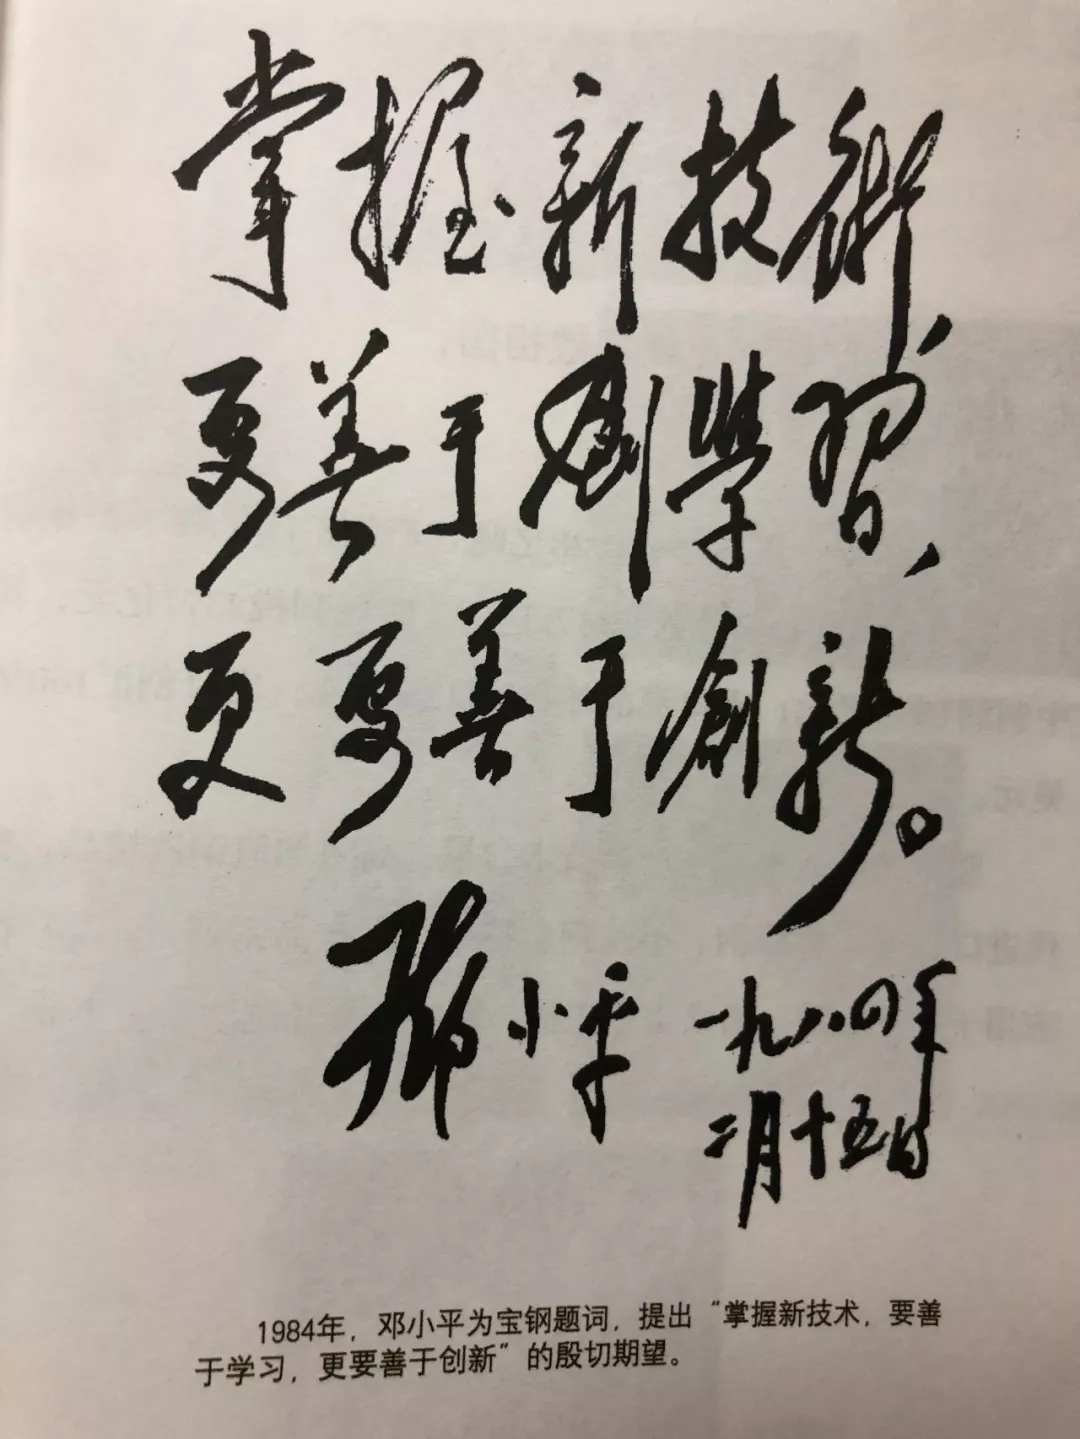 掌握新技術，
要善于學習，
更要善于創新。
鄧小平 一九八四年
二月十五日
1984年，邓小平为宝钢题词，提出“掌握新技术，要善
于学习，更要善于创新”的殷切期望。